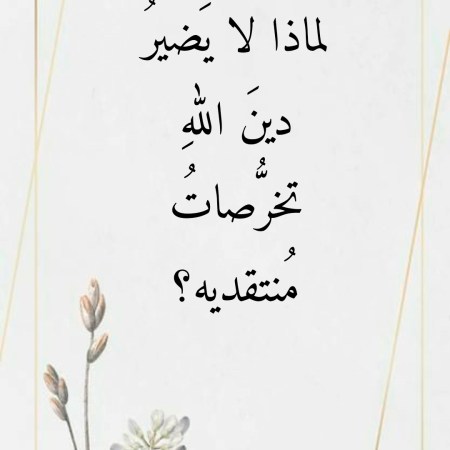 لماذا لا يَضيرُ
دينَ اللهِ
تخرُّصاتُ
مُنتقديه؟